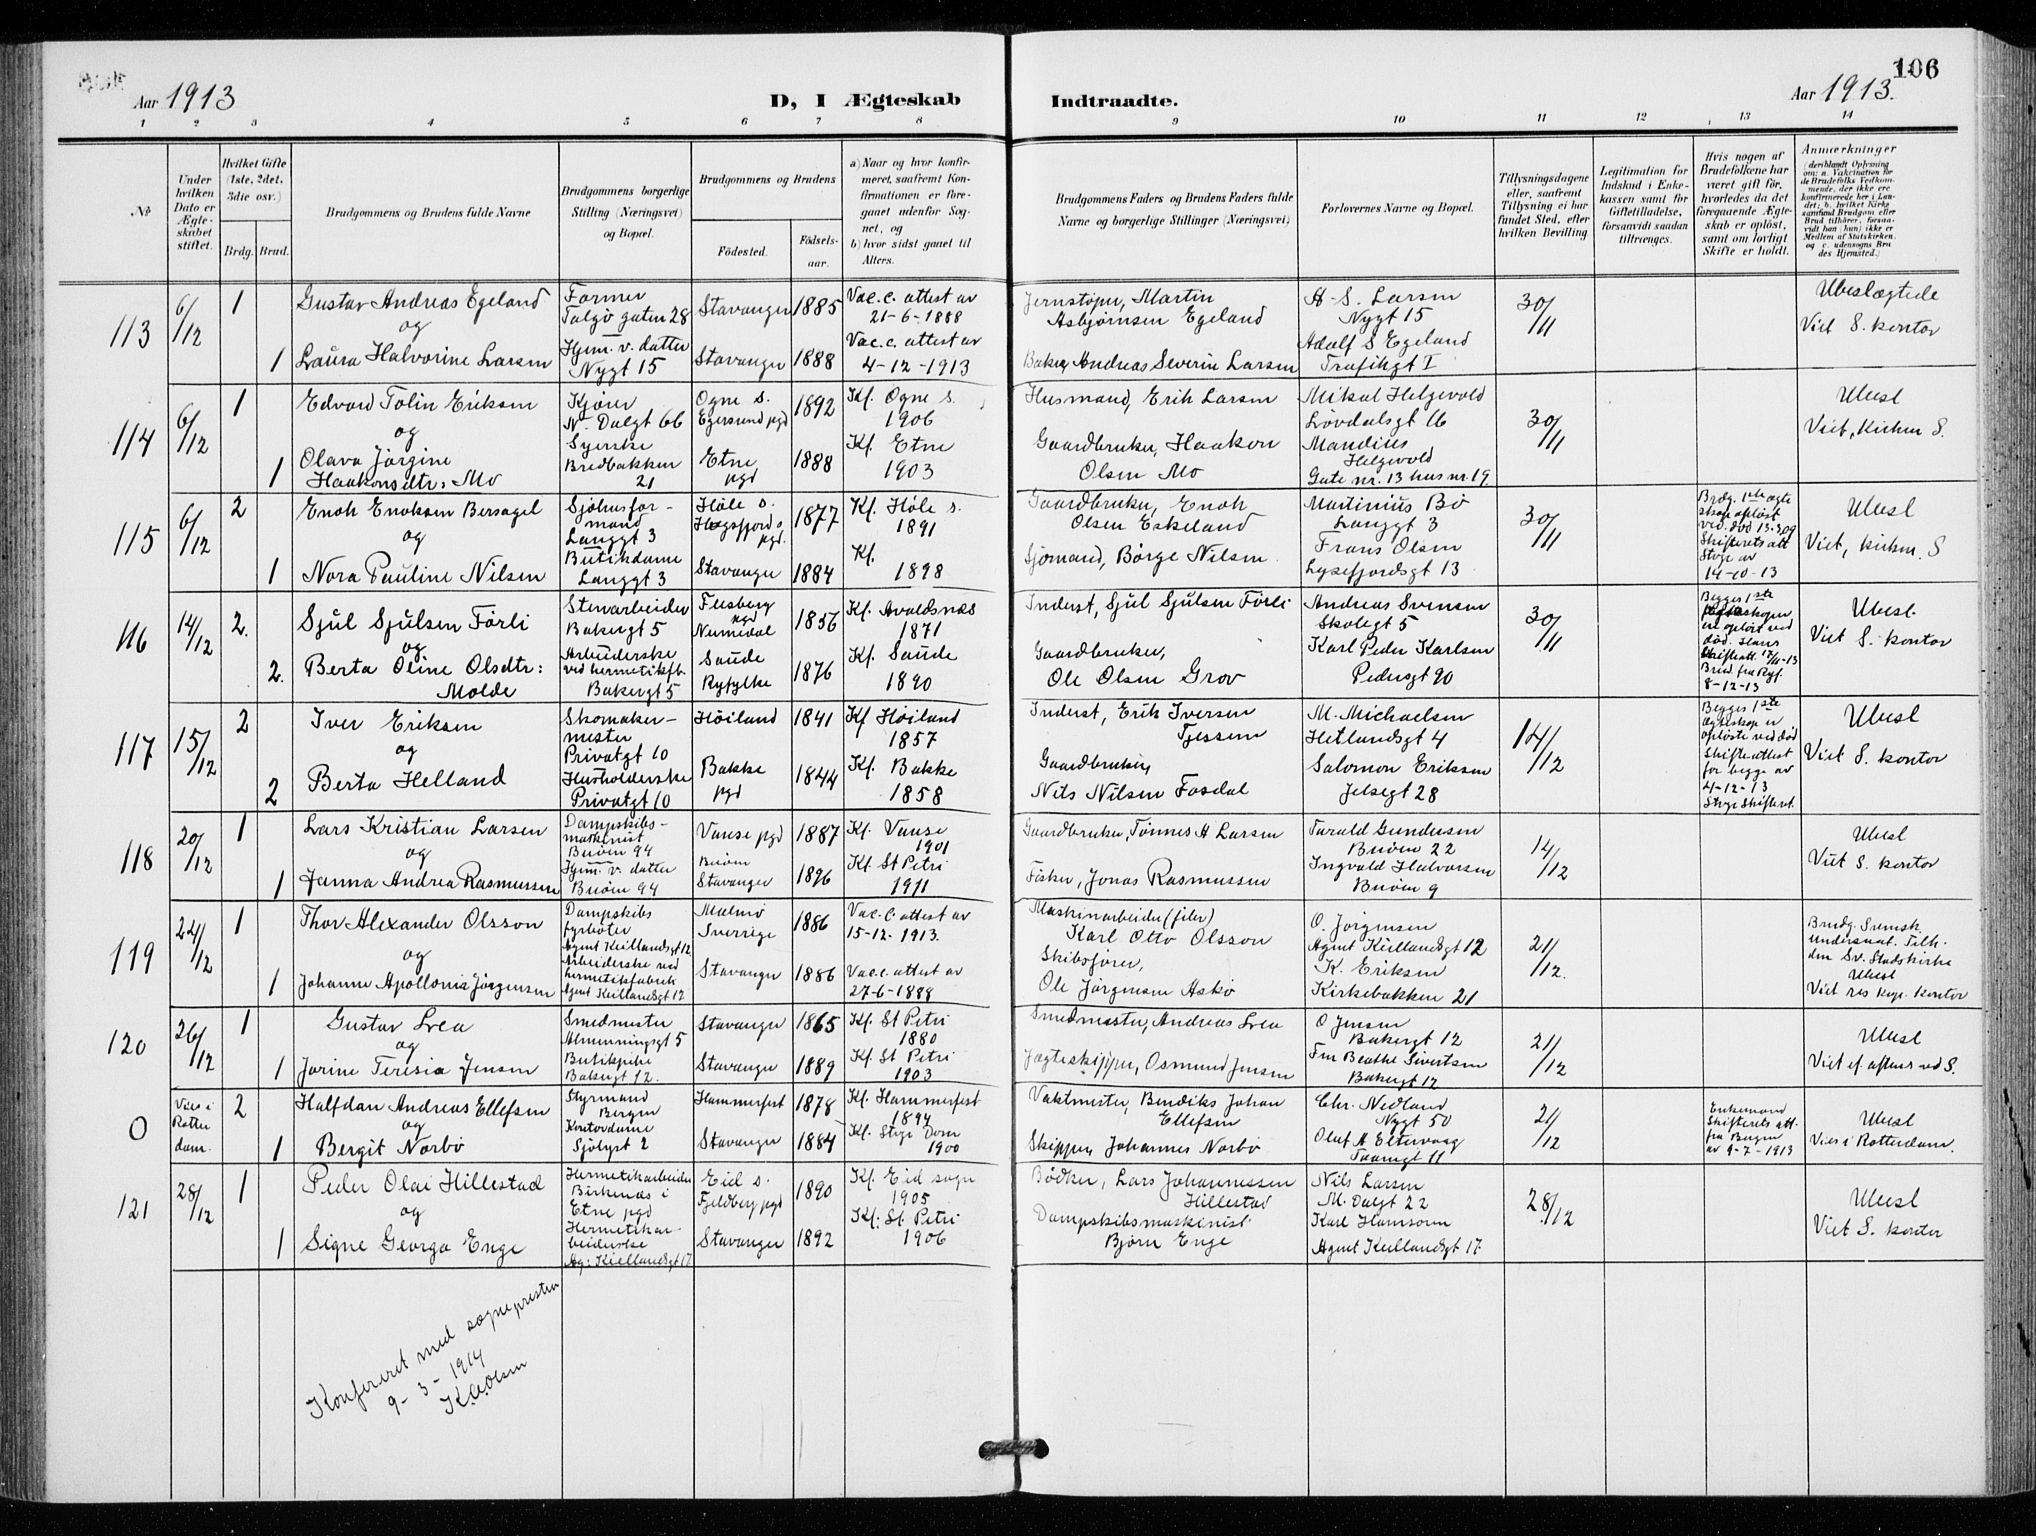 106
Aar 1913
D, I Ægteskab
Indtraadte.
Aar 1913.
1 2 3 4 5 6 7 8 9 10 11 12 13 14
№
Under hvilken Dato er Ægteskabet stiftet.
Hvilket Gifte (1ste, 2det, 3die osv.)
Brdg. Brud.
Brudgommens og Brudens fulde Navne
Brudgommens borgerlige Stilling (Næringsvei) og Bopæl.
Brudgommens og Brudens
Födested.
Födsels-aar.
a) Naar og hvor konfirmeret, saafremt Konfirmationen er foregaaet udenfor Sognet, og
b) hvor sidst gaaet til Alters.
Brudgommens Faders og Brudens Faders fulde Navne og borgerlige Stillinger (Næringsvei)
Forlovernes Navne og Bopæl.
Tillysningsdagene eller, saafremt Tillysning ei har fundet Sted, efter hvilken Bevilling
Legitimation for Indskud i Enkekassen samt for Giftetilladelse, forsaavidt saadan tiltrænges.
Hvis nogen af Brudefolkene har været gift för, hvorledes da det foregaaende Ægteskab er oplöst, samt om lovligt Skifte er holdt.
Anmerkninger
(deriblandt Oplysning om: a. Vakcination for de Brudefolks Vedkommende, der ikke ere konfirmerede her i Landet; b. hvilket Kirkesamfund Brudgom eller Brud tilhörer, forsaavidt han (hun) ikke er Medlem af Statskirken, og c. udensogns Brudes Hjemsted.)
113
6/12
1
Gustav Andreas Egeland
og
1
Laura Halvorine Larsen
Former
Talgö gaten 28
Hjem. v. datter
Nygt 15
Stavanger 1885
Stavanger 1888
Vac. c. attest av
21-6-1888
Vac. c. attest av
4-12-1913
Jernstøper, Martin
Asbjørnsen Egeland
Baker, Andreas Severin Larsen
A. S. Larsen
Nygt 15
Adolf S Egeland
Trafikgt I
30/11
Ubeslægtede
Viet S. kontor
114
6/12
1
Edvard Tolin Eriksen
og
1
Olava Jörgine
Haakonsdtr: Mo
Kjörer
N. Dalgt 66
Syerske
Bredbakken
21
Ogne s.
Egersund pgd 1892
Etne
pgd 1888
Kf. Ogne s.
1906
Kf. Etne
1903
Husmand, Erik Larsen
Gaardbruker, Haakon
Olsen Mo
Mikal Helgevold
Lövdalsgt 16
Mandius
Helgevold
Gate nr. 13 hus nr. 19
30/11
Ubesl
Viet, kirken S.
115
6/12
2
Enok Enoksen Bersagel
og
1
Nora Pauline Nilsen
Sjöhusfor-
mand
Langgt 3
Butikdame
Langgt 3
Höle s.
Høgsfjord s
pgd. 1877
Stavanger 1884
Kf. Höle s.
1891
Kf.
1898
Gaardbruker, Enok
Olsen Eskeland
Sjömand, Börge Nilsen
Martinius Bö
Langgt 3
Frans Olsen
Lysefjordsgt 13
30/11
Brdg. 1ste ægte
skap oplöst
ved död 13-3 09
Skifterets att
Stvgr av
14-10-13
Ubesl
Viet, kirken. S
116
14/12
2.
Sjul Sjulsen Förli
og
2.
Berta Oline Olsdtr:
Molde
Stenarbeider
Bakergt 5
Arbeiderske
ved hermetikfb.
Bakergt 5
Flesberg
pgd
Numedal 1856
Saude
Ryfylke 1876
Kf. Avaldsnæs
1871
Kf. Saude
1890
Inderst, Sjul Sjulsen Förli
Gaardbruker,
Ole Olsen Grov
Andreas Svensen
Skolegt 5
Karl Peder Karlsen
Pedersgt 90
30/11
Begges 1ste
ere oplöst ved
död. Hans
Skifteatt. 12/11-13
Brud. fra Ryf.
8-12-13
Ubesl.
Viet S. kontor
117
15/12
2
Iver Eriksen
og
2
Berta Helland
Skomaker-
mester
Privatgt 10
Husholderske
Privatgt 10
Höiland 1841
Bakke
pgd 1844
Kf Höiland
1857
Kf. Bakke
1858
Inderst, Erik Iversen
Tjessem
Gaardbruker,
Nils Nilsen Fosdal
M. Michaelsen
Hetlandsgt 4
Salomon Eriksen
Jelsegt 28
14/12
Begges 1ste
ægteskap er
oplöste ved död
Skifteattest
for begge av
4-12-13
Stvgr Skifteret.
Ubesl
Viet S. kontor
118
20/12
1
Lars Kristian Larsen
og
1
Janna Andrea Rasmussen
Dampskibs-
maskinist
Buöen 94
Hjem. v. datter
Buöen 94
Vanse pgd 1887
Buöen
Stavanger 1896
Kf. Vanse
1901
Kf. St Petri
1911
Gaardbruker, Tönnes A Larsen
Fisker, Jonas Rasmussen
Tarald Gundersen
Buöen 22
Ingvald Halvorsen
Buöen 9
14/12
Ubesl
Viet S. kontor
119
24/12
1
Thor Alexander Olsson
og
1
Johanne Apollonia Jörgensen
Dampskibs
fyrböter
Agent Kiellandsgt 12
Arbeiderske ved
hermetikfabrik
Agent Kiellandsgt 12
Malmö
Sverrige 1886
Stavanger 1886
Vac. c. attest av
15-12-1913.
Vac. c. attest av
27-6-1888
Maskinarbeider (filer)
Karl Otto Olsson
Skibsförer,
Ole Jörgensen Askö
O. Jörgensen
Agent Kiellandsgt 12
K. Eriksen
Kirkebakken 21
21/12.
Brudg. Svensk.
undersaat. Tilh.
den Sv. Stadskirke
Ubesl
Viet res kap. kontor
120
26/12
1
Gustav Svea
og
1
Jorine Teresia Jensen
Smedmester
Almenningsgt 5
Butikpike
Bakergt 12.
Stavanger 1865
Stavanger 1889
Kf. St Petri
1880
Kf. St Petri
1903
Smedmester, Andreas Svea
Jægteskipper, Osmund Jensen
O Jensen
Bakergt 12
Fru Beathe Sivertsen
Bakergt 12
21/12
Ubesl
Viet ef. aftens ved S.
0
Vies i
Rotter
dam.
2
Halfdan Andreas Ellefsen
og
1
Bergit Norbö
Styrmand
Bergen
Kontordame
Sjölyst 2
Hammerfest 1878
Stavanger 1884
Kf. Hammerfest
1894
Kf. Stvgr Dom
1900
Vaktmester, Bendiks Johan
Ellefsen
Skipper, Johannes Norbö
Chr. Nedland
Nygt 50
Olaf A Eltervaag
Taarngt 11
21/12
Enkemand
Skifterets att.
fra Bergen
av 9-7-1913
Ubesl
Vies i Rotterdam.
121
28/12
1
Peder Olai Hillestad
og
1
Signe Georga Enge
Hermetikarbeider
Birkenæs i
Etne pgd
Hermetikar-
beiderske
Ag: Kiellandsgt 17
Eid s.
Fjeldberg pgd 1890
Stavanger 1892
Kf. Eid sogn
1905
Kf: St Petri
1906
Bödker, Lars Johannessen
Hillestad
Dampskibsmaskinist
Björn Enge
Nils Larsen
M. Dalgt 22
Karl Hamsonn
Agent Kiellandsgt 17.
28/12
Ubesl
Viet S. kontor
Konfereret med sognepresten
9-3-1914
K. Olsen